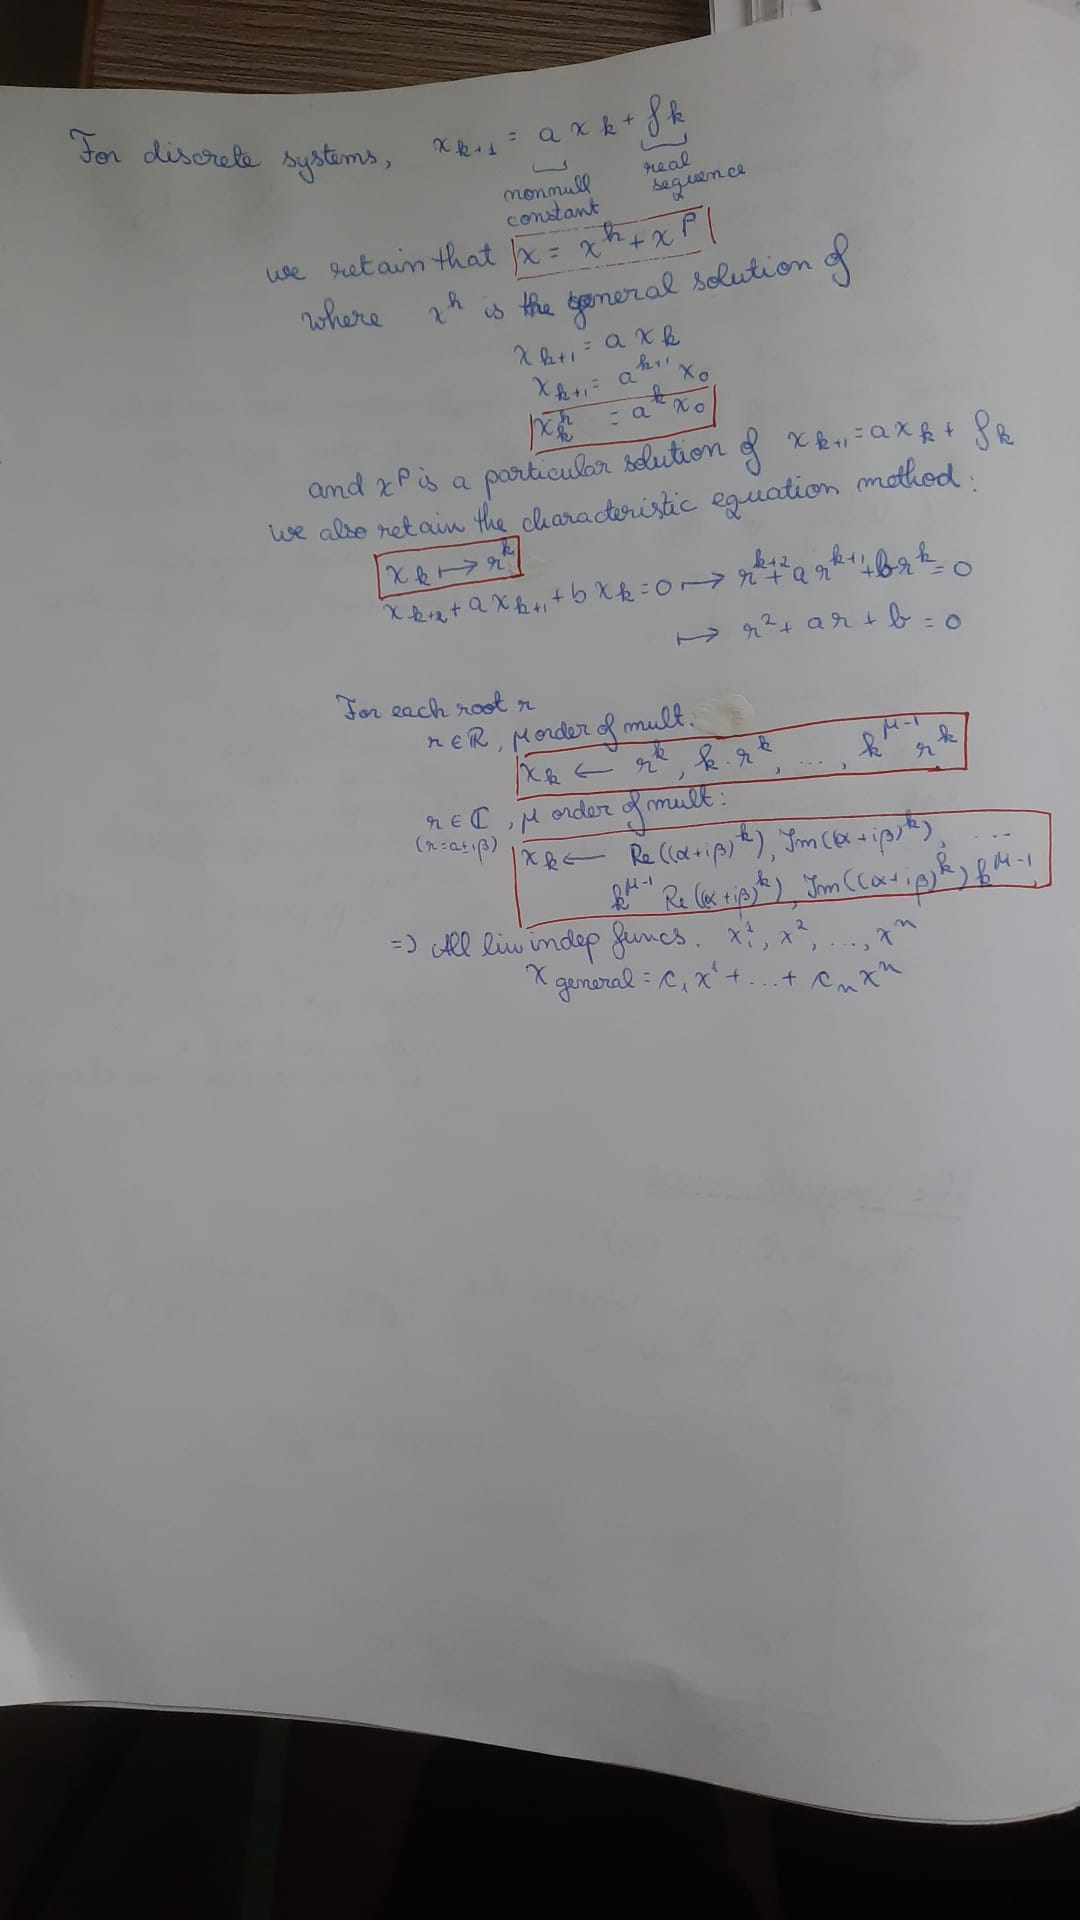 For discrete systems, x_{k+1} = a x_k + f_k
nonnull constant
real sequence
we retain that x = x^h + x^p
where x^h is the general solution of
x_{k+1} = a x_k
x_{k+1} = a^{k+1} x_0
x_k^h = a^k x_0
and x^p is a particular solution of x_{k+1} = a x_k + f_k
we also retain the characteristic equation method:
x_k ↦ r^k
x_{k+2} + a x_{k+1} + b x_k = 0 ↦ r^{k+2} + a r^{k+1} + b r^k = 0
↦ r^2 + a r + b = 0
For each root r
r ∈ ℝ, μ order of mult.
x_k ← r^k, k · r^k, ..., k^{μ-1} r^k
r ∈ ℂ, μ order of mult:
(r = α ± iβ)
x_k ← Re((α+iβ)^k), Im((α+iβ)^k), ...
k^{μ-1} Re((α+iβ)^k), Im((α+iβ)^k) k^{μ-1}
=> All lin indep funcs. x^1, x^2, ..., x^n
x general = c_1 x^1 + ... + c_n x^n